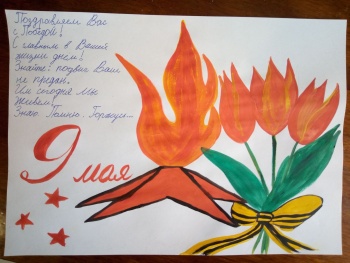 Поздравляем Вас
с Победой!
С главным в Вашей
жизни днем!
Знайте: подвиг Ваш
не предан.
Им сегодня мы
живем!
Знаю. Помню. Горжусь...
9 мая